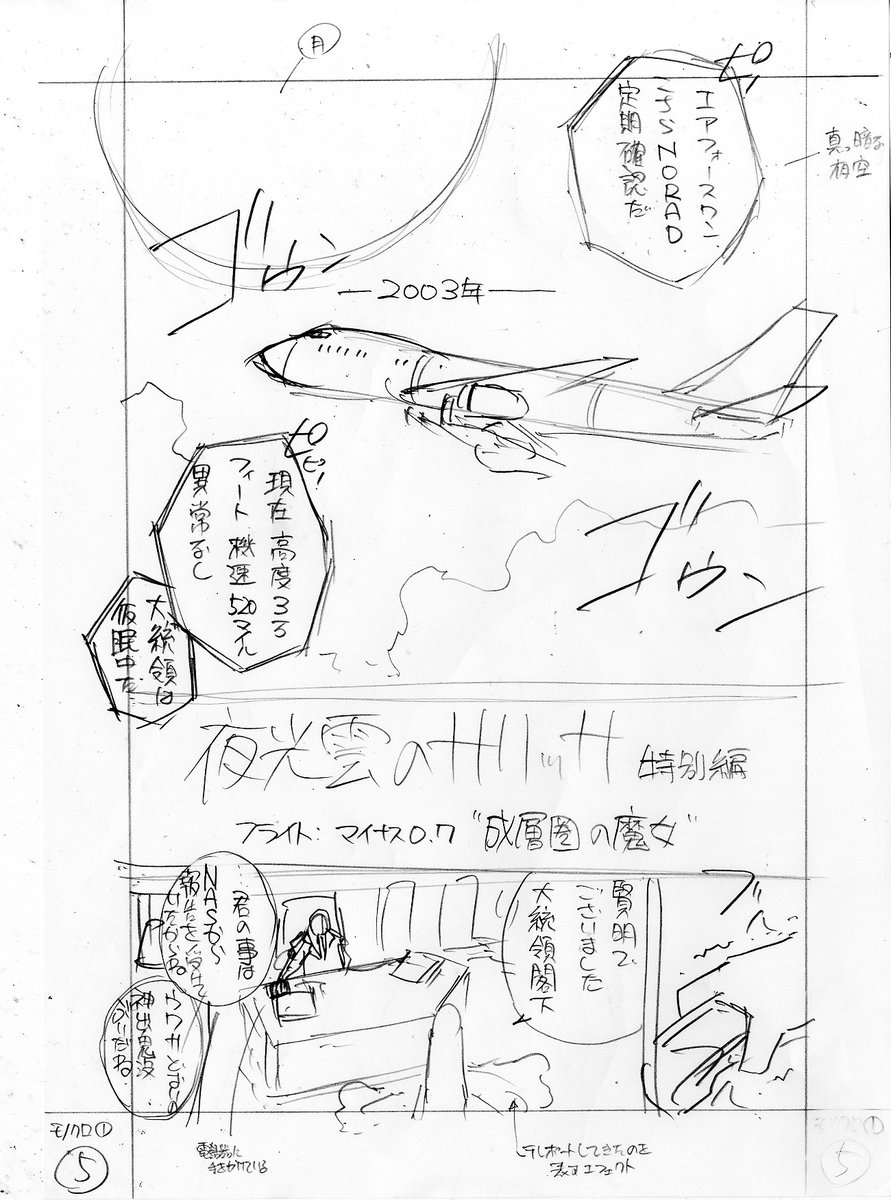 月
ピッ
エアフォースワン
こちらNORAD
定期確認だ
真っ暗な
夜空
ゴウン
ー2003年ー
ピピッ!
現在高度3万
フィート機速520マイル
異常なし
大統領は
仮眠中だ
ゴウン
夜光雲のサリッサ 特別編
フライト:マイナス0.7 "成層圏の魔女"
賢明で
ございました
大統領閣下
君の事は
NASから
報告を受けて
ウワサどおりの
神出鬼没
ぶりだね
モノクロ①
5
電話に
手をかけている
テレポートしてきたのを
表すエフェクト
モノクロ①
5